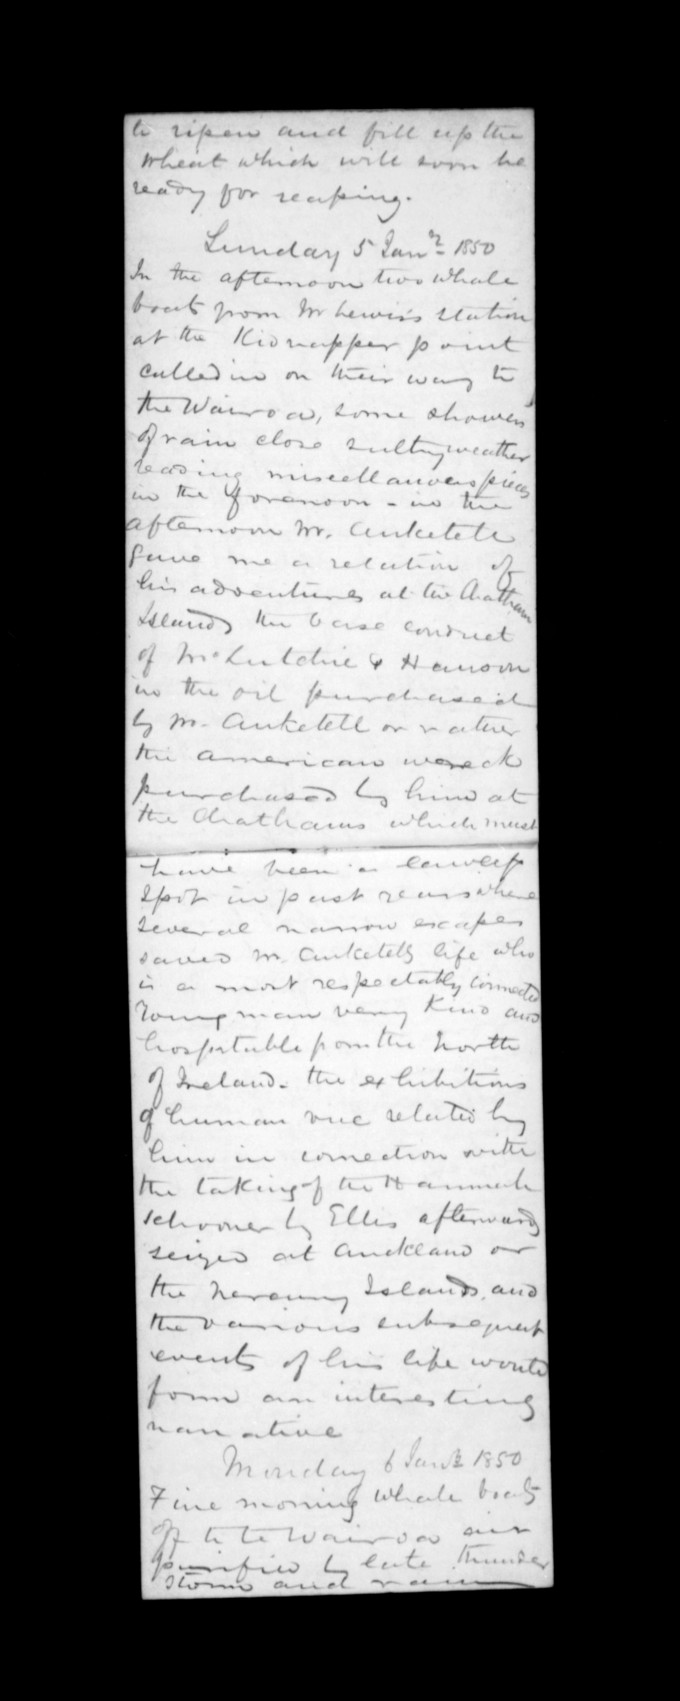 to ripen and fill up the
wheat which will soon be
ready for reaping.
Sunday 5 Jany 1850
In the afternoon two whale
boats from Mr Lewis's station
at the Kidnapper point
called in on their way to
the Wairoa, some showers
of rain close sultry weather
reading miscellaneous pieces
in the forenoon - in the
afternoon Mr. Anketell
gave me a relation of
his adventures at the Chatham
Islands the base conduct
of & Hanson
in the oil purchased
by Mr. Anketell or rather
the American wreck
purchased by him at
the Chathams which must
have been a lawless
spot in past years where
several narrow escapes
saved Mr. Anketells life who
is a most respectably connected
young man very kind and
hospitable from the North
of Ireland - the exhibitions
of human vice related by
him in connection with
the taking of the Hannah
schooner by Ellis afterwards
seized at Auckland or
the Islands, and
the various subsequent
events of his life would
form an interesting
narrative
Monday 6 Jany 1850
Fine morning whale boats
off to te Wairoa air
purified by late thunder
storm and rain